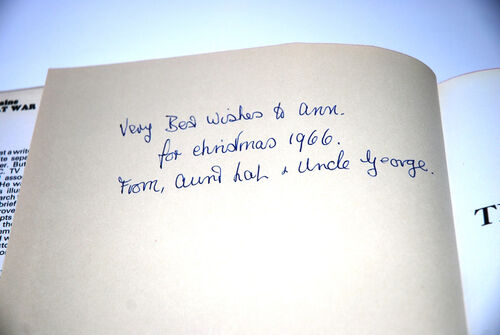 Very Best Wishes to Ann.
for christmas 1966.
From, Aunt Lal + Uncle George.
T WAR
TV
T